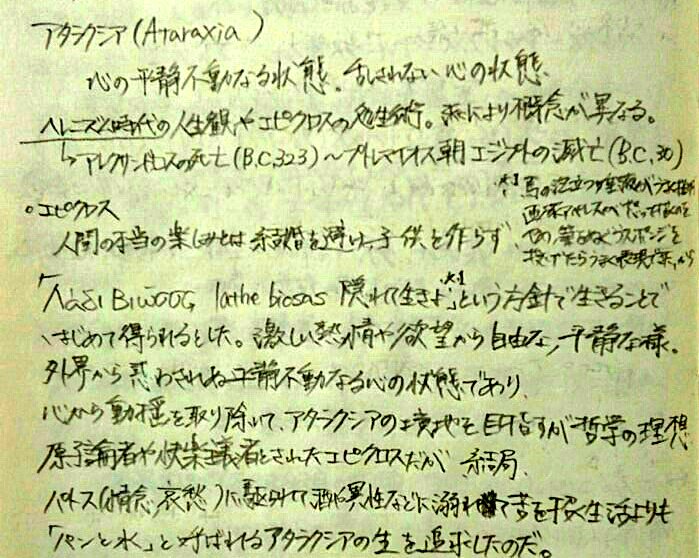 アタラクシア(Ataraxia)
心の平静不動なる状態。乱されない心の状態、
ヘレニズム時代の人生観やエピクロスの処生術。派により概念が異なる。
↳アレクサンドロスの死亡(B.C,323)〜プトレマイオス朝エジプトの滅亡(B.C,30)
*1 馬の泡立つ唾液が
画家アペレスが
スポンジを
投げたらうまく表現
○エピクロス
人間の本当の楽しみとは結婚を避け、子供を作らず、
「Λάδι Βιώσας lathe biosas 隠れて生きよ」*1という方針で生きることで
はじめて得られるとした。激しい熱情や欲望から自由な、平静な様。
外界から惑わされね平静不動なる心の状態であり、
心から動揺を取り除いて、アタラクシアの境地を目指すが哲学の理想
原子論者や快楽主義者とされたエピクロスだが 結局、
パトス(情念、哀愁)に駆られて酒や異性などに溺れて 生活よりも
「パンと水」と呼ばれるアタラクシアの生を追求したのだ。